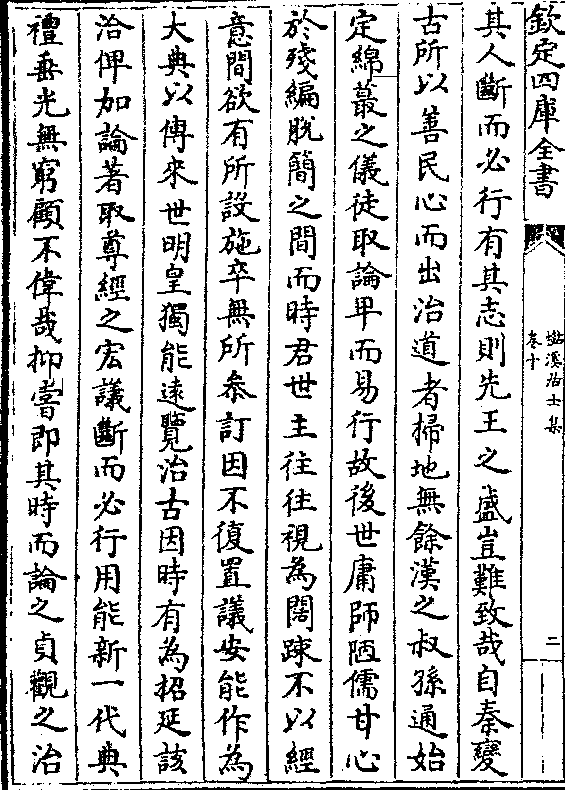 欽定四庫全書
溪居士集
卷十
二
其人斷而必行有其志則先王之盛豈難致哉自秦變
古所以善民心而出治道者掃地無餘漢之叔孫通始
定綿蕞之儀徒取論卑而易行故後世庸師陋儒甘心
於殘編脫簡之間而時君世主往往視為闊踈不以經
意間欲有所設施卒無所叅訂因不復置議安能作為
大典以傳來世明皇獨能遠覽治古因時有為招延該
洽俾加論著取尊經之宏議斷而必行用能新一代典
禮垂光無窮顧不偉哉抑嘗即其時而論之貞觀之治